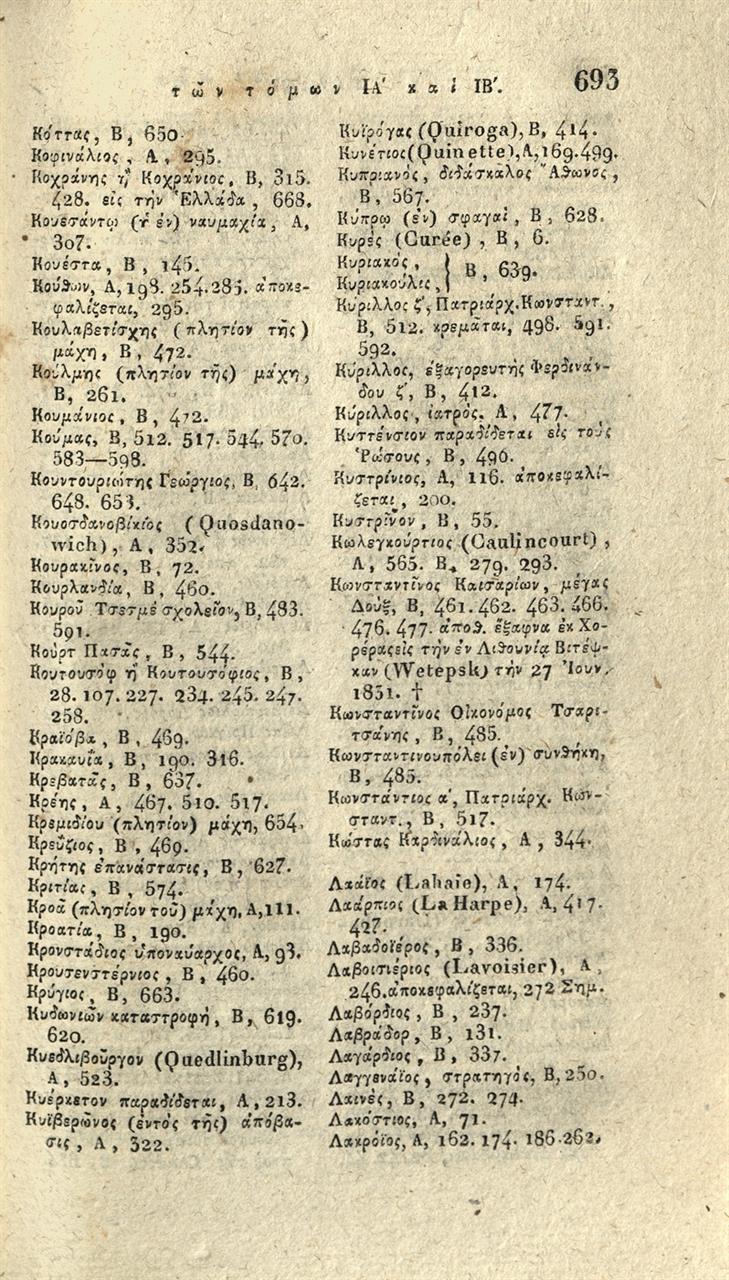 τῶν τόμων ΙΑ΄ καὶ ΙΒ΄. 693
Κόττας, Β, 650.
Κοφινάλιος, Α, 295.
Κοχράνης ἢ Κοχράνιος, Β, 315.
428. εἰς τὴν Ἑλλάδα, 668.
Κουεσάντῳ (ἡ ἐν) ναυμαχία, Α,
307.
Κουέστα, Β, 145.
Κούθων, Α, 198. 254. 285. ἀποκε-
φαλίζεται, 295.
Κουλαβετίσχης (πλησίον τῆς)
μάχη, Β, 472.
Κούλμης (πλησίον τῆς) μάχη,
Β, 261.
Κουμάνιος, Β, 472.
Κούμας, Β, 512. 517. 544. 570.
583—598.
Κουντουριώτης Γεώργιος, Β, 642.
648. 653.
Κουοσδανοβίκιος (Quosdano-
wich), Α, 352.
Κουρακῖνος, Β, 72.
Κουρλανδία, Β, 460.
Κουροῦ Τσεσμὲ σχολεῖον, Β, 483.
591.
Κοὺρτ Πασᾶς, Β, 544.
Κουτουσόφ ἢ Κουτουσόφιος, Β,
28. 107. 227. 234. 245. 247.
258.
Κραϊόβα, Β, 469.
Κρακαυΐα, Β, 190. 316.
Κρεβατᾶς, Β, 637.
Κρέης, Α, 467. 510. 517.
Κρεμιδίου (πλησίον) μάχη, 654.
Κρεΰζιος, Β, 469.
Κρήτης ἐπανάστασις, Β, 627.
Κριτίας, Β, 574.
Κροᾶ (πλησίον τοῦ) μάχη, Α, 111.
Κροατία, Β, 190.
Κρονστάδιος ὑποναύαρχος, Α, 93.
Κρουσενστέρνιος, Β, 460.
Κρύγιος, Β, 663.
Κυδωνιῶν καταστροφή, Β, 619.
620.
Κυεδλιβοῦργον (Quedlinburg),
Α, 523.
Κυέρκετον παραδίδεται, Α, 213.
Κυϊβερῶνος (ἐντὸς τῆς) ἀπόβα-
σις, Α, 322.
Κυϊρόγας (Quiroga), Β, 414.
Κυνέτιος (Quinette), Α, 169. 499.
Κυπριανός, διδάσκαλος Ἄθωνος,
Β, 567.
Κύπρῳ (ἐν) σφαγαί, Β, 628.
Κυρὲς (Curée), Β, 6.
Κυριακός,
Κυριακούλις, } Β, 639.
Κύριλλος ζ΄, Πατριάρχ. Κωνσταντ.,
Β, 512. κρεμᾶται, 498. 591.
592.
Κύριλλος, ἐξαγορευτὴς Φερδινάν-
δου ζ΄, Β, 412.
Κύριλλος, ἰατρός, Α, 477.
Κυστένσιον παραδίδεται εἰς τοὺς
Ῥώσους, Β, 490.
Κυστρίνιος, Α, 116. ἀποκεφαλί-
ζεται, 200.
Κυστρῖνον, Β, 55.
Κωλεγκούρτιος (Caulincourt),
Α, 565. Β, 279. 293.
Κωνσταντῖνος Καισαρίων, μέγας
Δούξ, Β, 461. 462. 463. 466.
476. 477. ἀποθ. ἔξαφνα ἐκ Χο-
ρέρας εἰς τὴν ἐν Λιθουνίᾳ Βιτέψ-
καν (Wetepsk) τὴν 27 Ἰουν.
1831. †
Κωνσταντῖνος Οἰκονόμος Τσαρι-
τσάνης, Β, 485.
Κωνσταντινουπόλει (ἐν) συνθήκη,
Β, 485.
Κωνστάντιος α΄, Πατριάρχ. Κων-
σταντ., Β, 517.
Κώστας Καρδινάλιος, Α, 344.
Λαάϊος (Lahaie), Α, 174.
Λαάρπιος (La Harpe), Α, 417.
427.
Λαβαδοϊέρος, Β, 336.
Λαβοισιέριος (Lavoisier), Α,
246. ἀποκεφαλίζεται, 272 Σημ.
Λαβόρδιος, Β, 237.
Λαβράδορ, Β, 131.
Λαγάρδιος, Β, 337.
Λαγγενάϊος, στρατηγός, Β, 250.
Λαινές, Β, 272. 274.
Λακόστιος, Α, 71.
Λακρόϊος, Α, 162. 174. 186. 262.